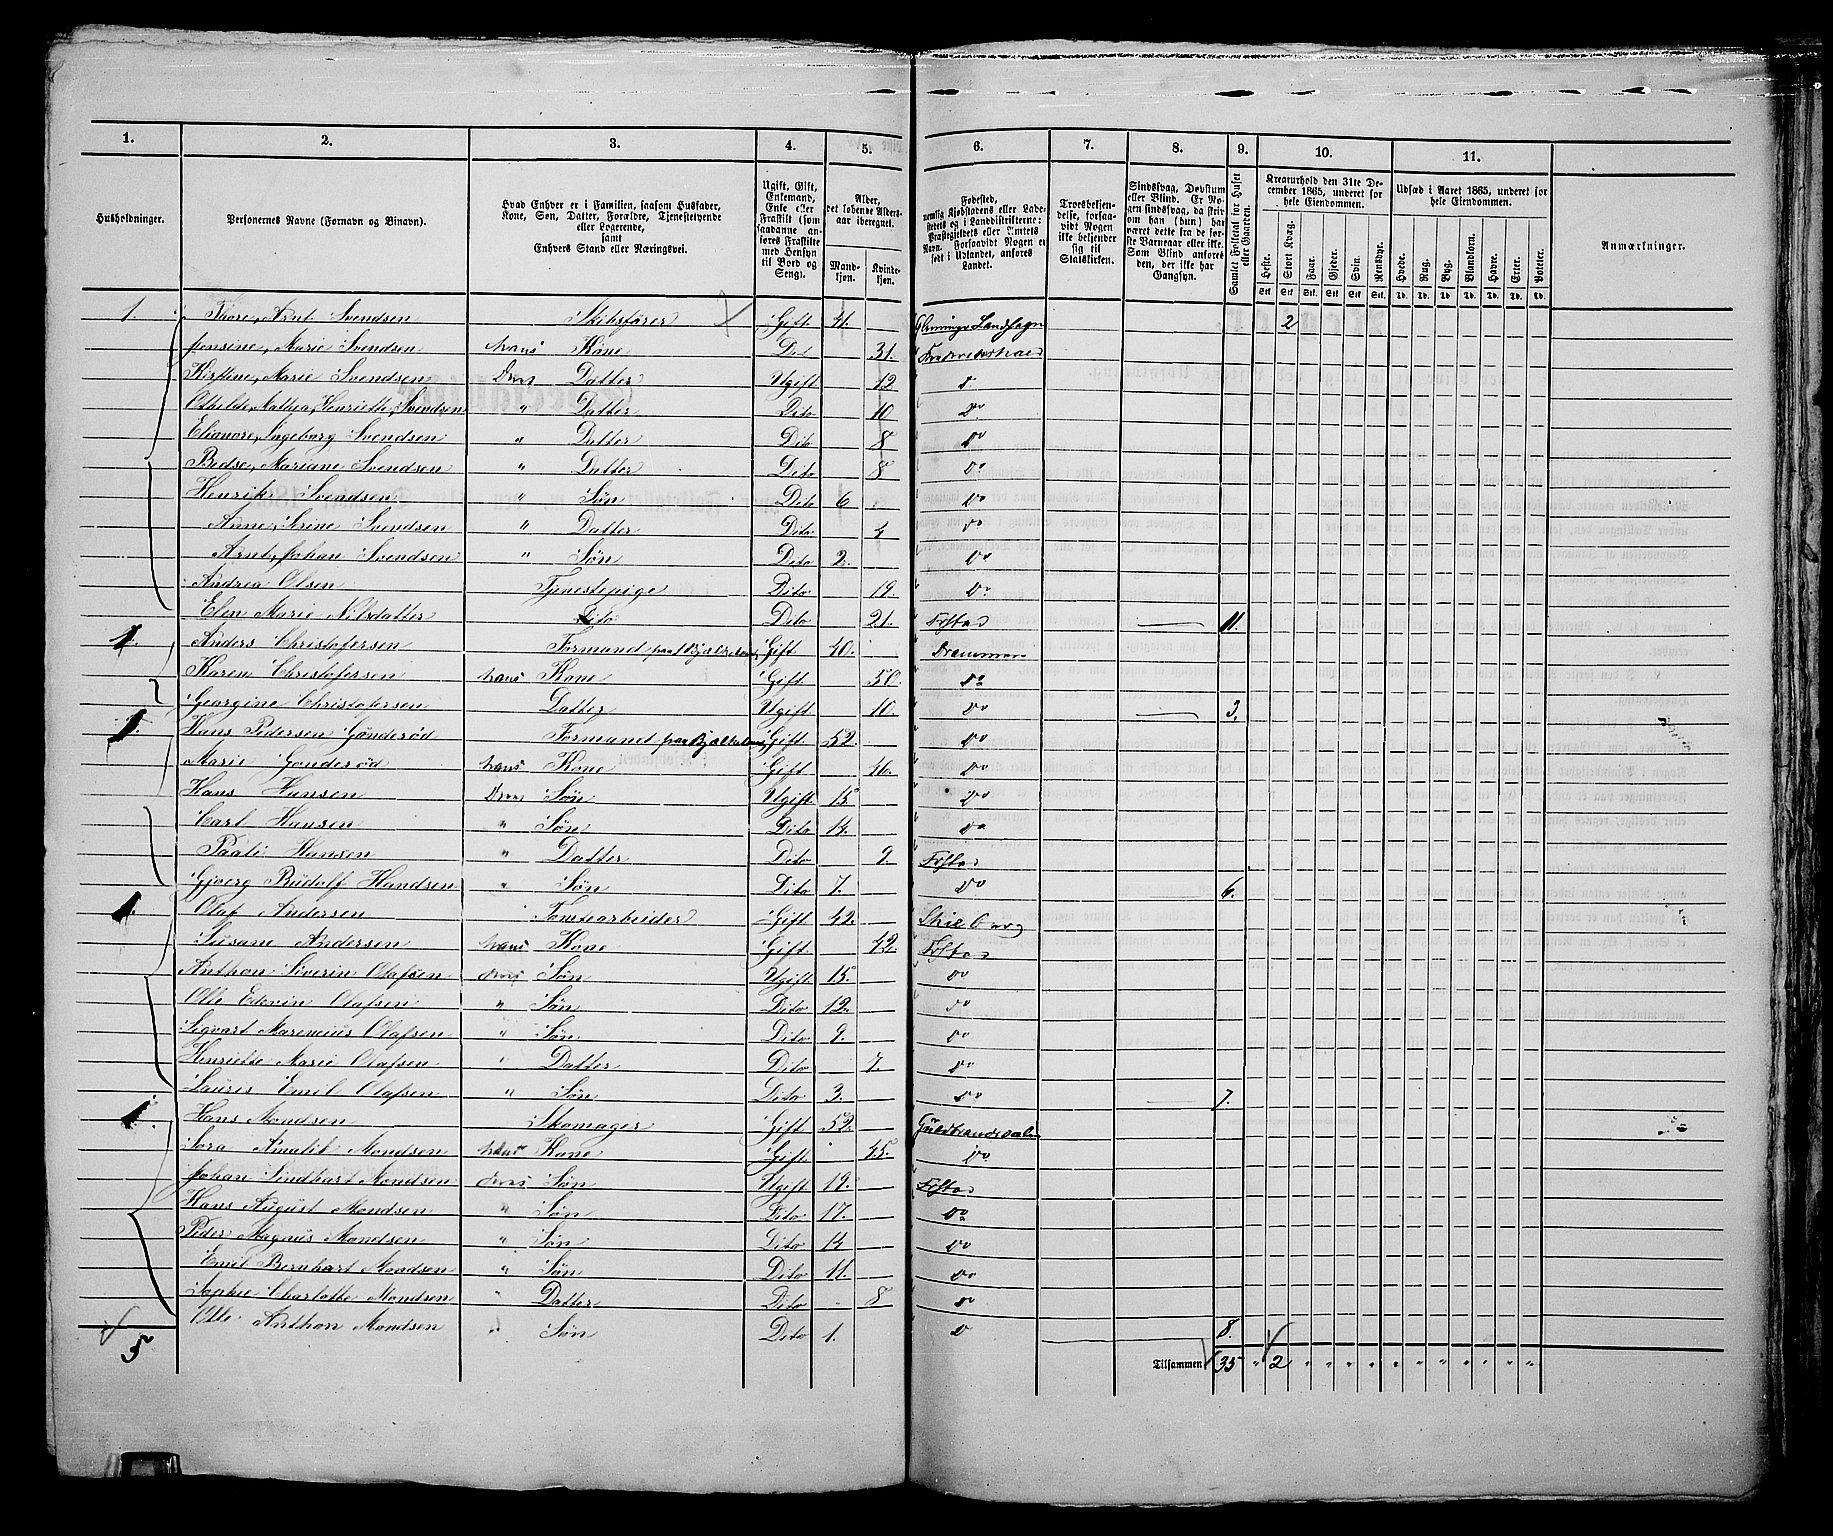 1. 2. 3. 4. 5. 6. 7. 8. 9. 10. 11.
Husholdninger.
Personernes Navne (Fornavn og Binavn).
Hvad Enhver er i Familien, saasom Husfader, Kone, Søn, Datter, Forældre, Tjenestetyende eller Logerende, samt Enhvers Stand eller Næringsvei.
Ugift, Gift, Enkemand, Enke eller Fraskilt (som saadanne anføres Fraskilte med Hensyn til Bord og Seng).
Alder, det løbende Aldersaar iberegnet.
Mandkjøn. Kvindekjøn.
Fødested, nemlig Kjøbstadens eller Ladestedets og i Landdistrikterne: Præstegjeldets eller Amtets Navn. Forsaavidt Nogen er født i Udlandet, anføres Landet.
Troesbekjendelse, forsaavidt Nogen ikke bekjender sig til Statskirken.
Sindssvag, Døvstum eller Blind. Er Nogen sindssvag, da skrives om han (hun) har været dette fra de første Barneaar eller ikke. Som Blind anføres den, der ikke har Gangsyn.
Samlet Folketal for Huset eller Gaarden.
Kreaturhold den 31te December 1865, underet for hele Eiendommen.
Heste. Stort Kvæg. Faar. Gjeder. Svin. Rensdyr.
Stk. Stk. Stk. Stk. Stk. Stk.
Udsæd i Aaret 1865, underet for hele Eiendommen.
Hvede. Rug. Byg. Blandkorn. Havre. Erter. Poteter.
Td. Td. Td. Td. Td. Td. Td.
Anmærkninger.
1. Thore, Arnt Svendsen Skibsfører Gift 41. Glemminge Landsogn 2
Jensine, Marie Svendsen hans Kone Do 31. Frederikstad
Kirstine, Marie Svendsen Deres Datter Ugift 12 do
Othilde, Mathea, Henriette, Svendsen " Datter Dito 10 Do
Elionore, Ingeborg Svendsen " Datter Dito 8 Do
Bedse, Mariane Svendsen " Datter Dito 8 Do
Henrik Svendsen " Søn Dito 6 Do
Anne, Serine Svendsen " Datter Dito 4 Do
Arnt, Johan Svendsen " Søn Dito 2. Do
Andrea Olsen Tjenestepige Dito 19. Do
Elen Marie Nilsdatter Dito Dito 21. Frstad 11.
1. Anders Christofersen Formand paa Bjelkeland Gift 40. Drammen
Karen Christofersen hans Kone Gift 50. Do
Georgine Christofersen Datter Ugift 10. Do 3.
1. Hans Pedersen Gonderød Formand paa Bjelkeland Gift 52. Do
Marie Gonderød hans Kone Gift 46. Do
Hans Hansen Deres Søn Ugift 15. Do
Carl Hansen " Søn Dito 14. Do
Hansen " Datter Dito 9. Frstad
Gjoerg Rudolf Handsen " Søn Dito 7. Do 6.
1. Olaf Andersen Tomtearbeider Gift 42.
Susane Andersen hans Kone Gift 42. Frstad
Anthon Siverin Olafsen deres Søn Ugift 15. Do
Olle Edevin Olafsen " Søn Dito 12. Do
Sigvart Marenius Olafsen " Søn Dito 9. Do
Henriette Marie Olafsen " Datter Dito 7. Do
Lauris Emil Olafsen " Søn Dito 3. Do 7.
1. Hans Mondsen Skomager Gift 52. Guldbrandsdalen
Amalie Mondsen hans Kone Gift 45. Do
Johan Lindhart Mondsen deres Søn Ugift 19. Frstad
Hans August Mondsen " Søn Dito 17. Do
Peder Magnus Mondsen " Søn Dito 14 Do
Emil Bernhart Mondsen " Søn Dito 11. Do
Sophie Charlotte Mondsen " Datter Dito 8 Do
Olle Anthon Mondsen " Søn Dito 1. Do 8.
5 Tilsammen 35 " 2 " " " " " " " " " " "